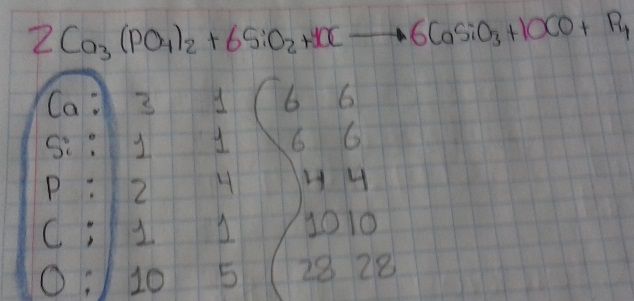 2Ca₃(PO₄)₂ + 6SiO₂ + 10C → 6CaSiO₃ + 10CO + P₄
Ca: 3 1 6 6
Si: 1 1 6 6
P: 2 4 4 4
C: 1 1 10 10
O: 10 5 28 28